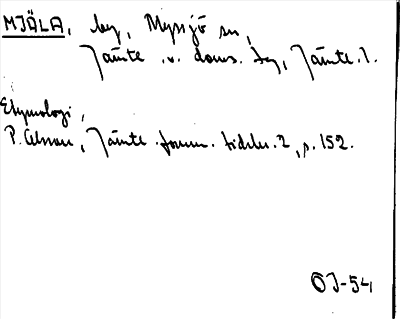 MJÄLA, by, Myssjö sn,
Jämte. v. doms. tg, Jämtl. l.
Etymologi,
P. Olsson, Jämtl. fornm. tidskr. 2, p. 152.
OJ-54